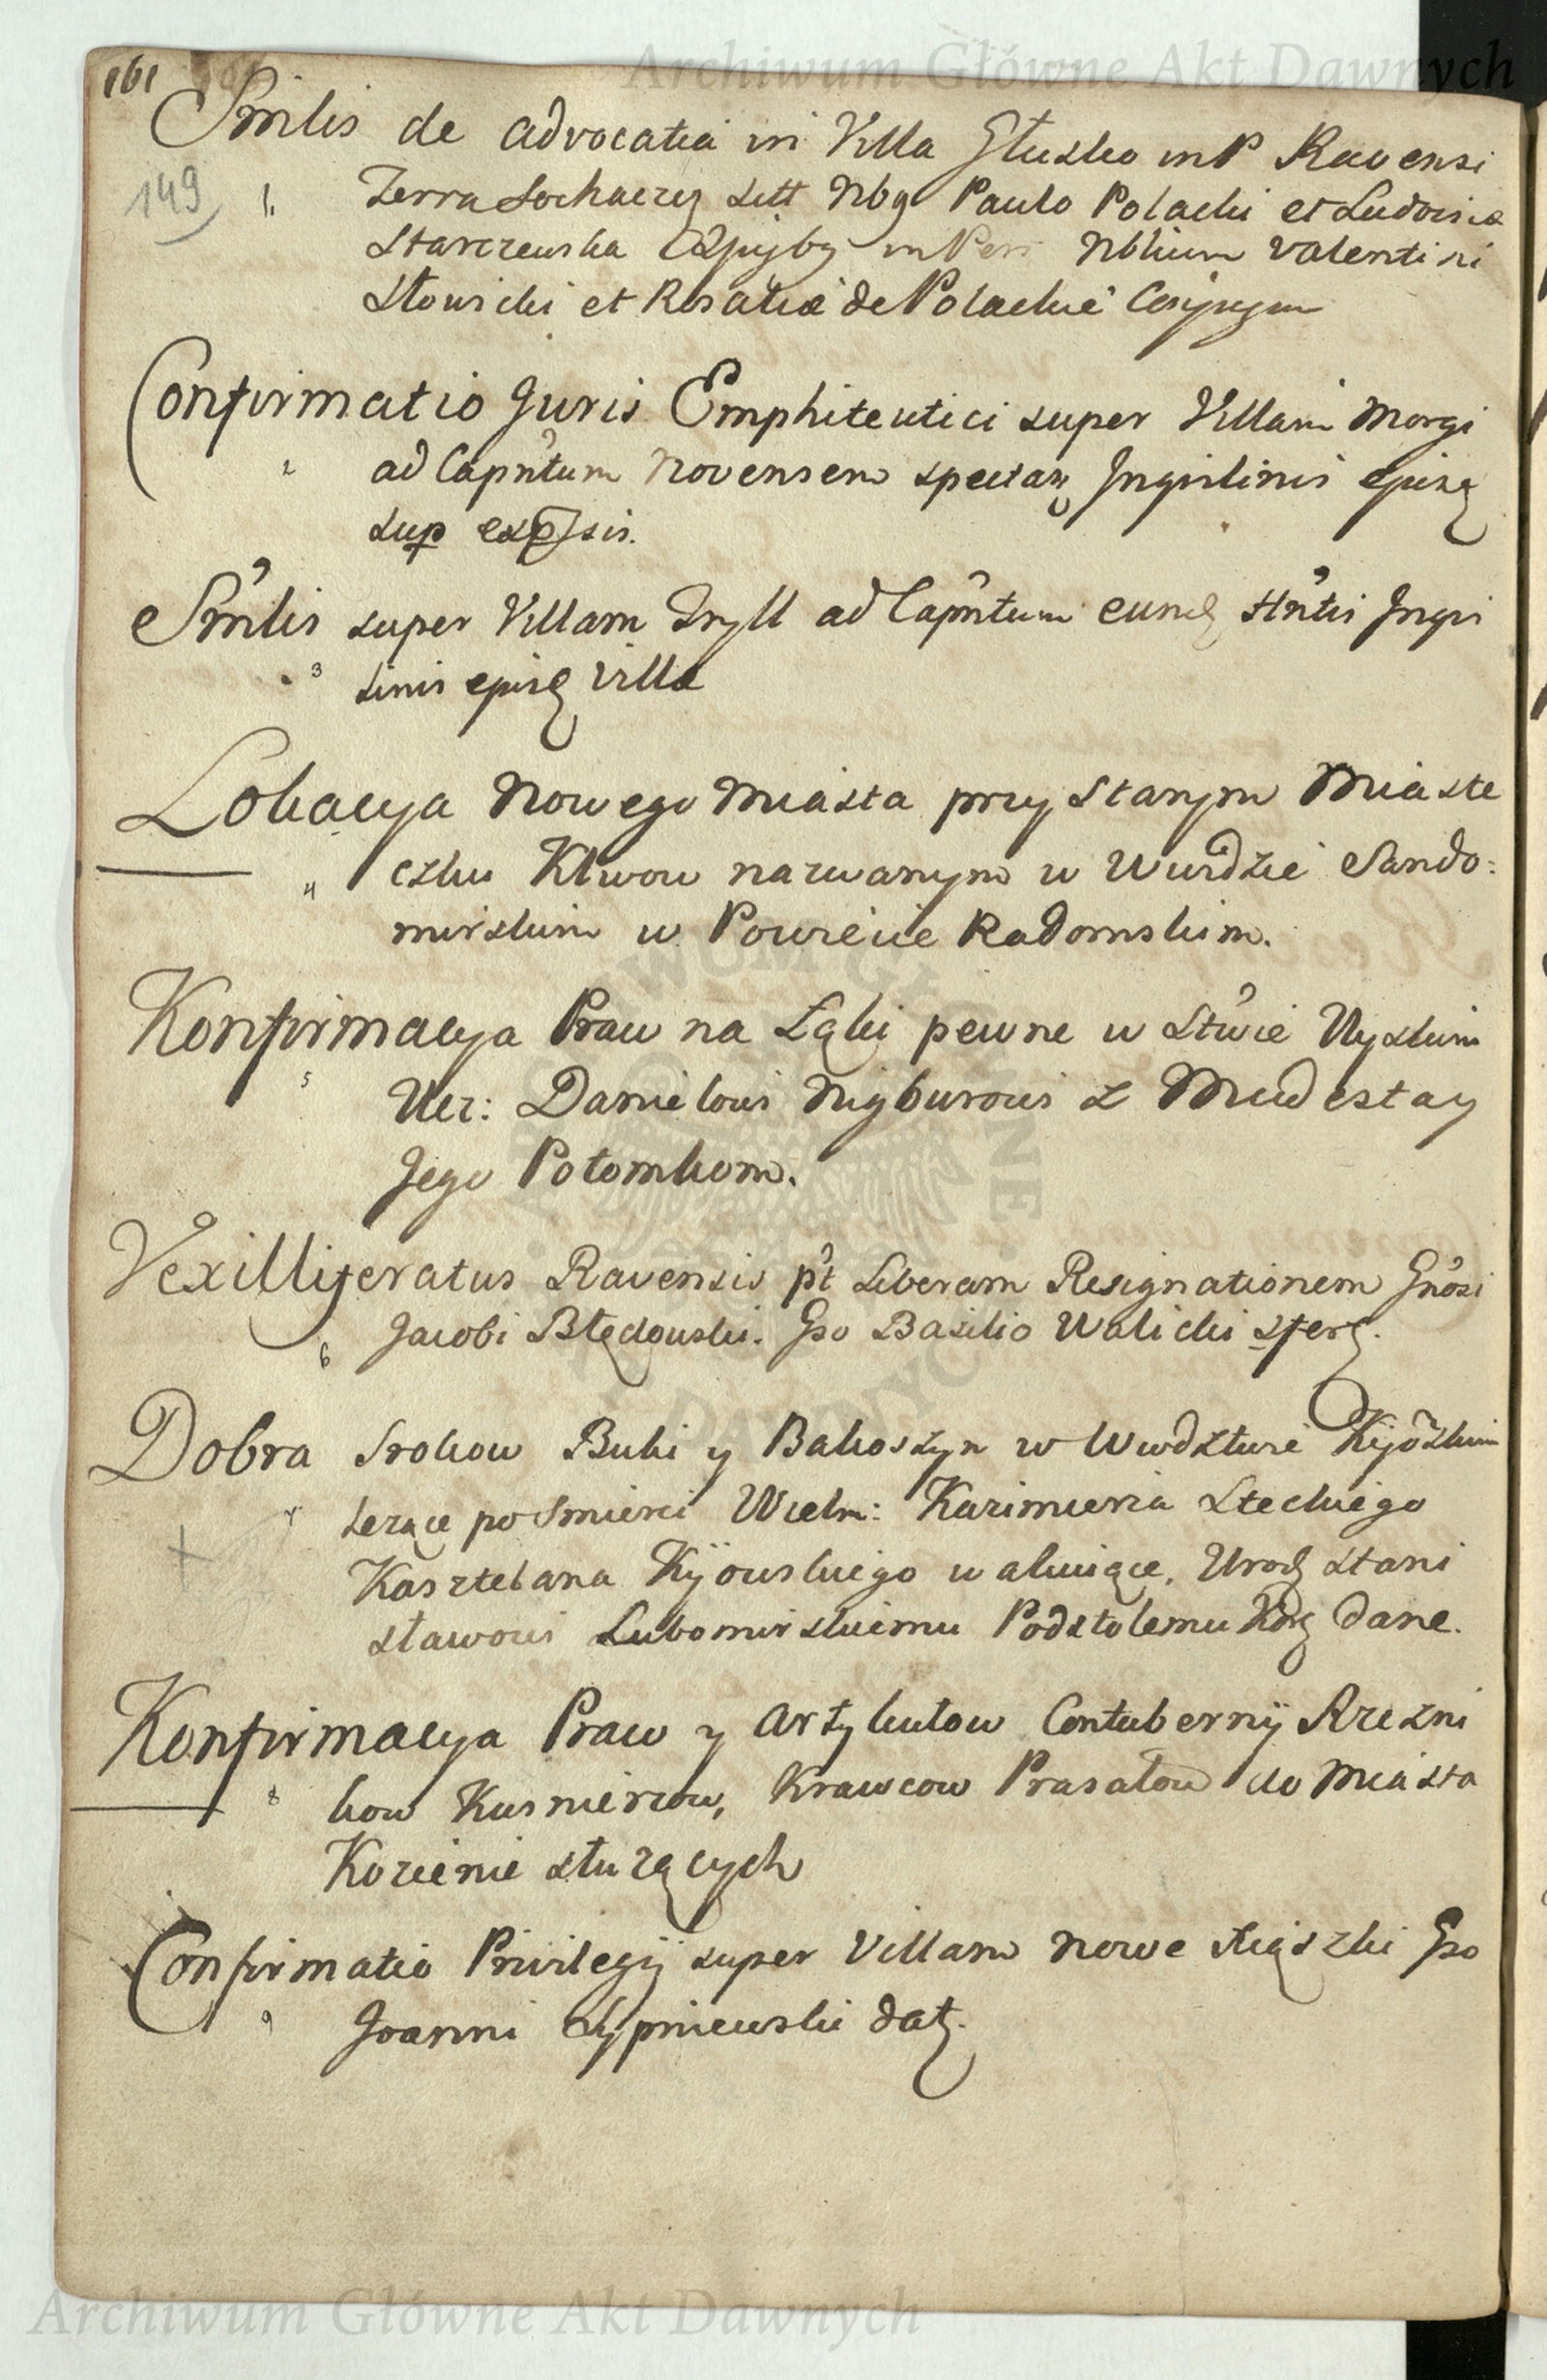 Archiwum Główne Akt Dawnych
161
Smilis de advocatia in Villa Głusko in P Ravensi
149 1. Terra Sochacze Sitt Nbg Paulo Polacki et Ludovica
Starczewska in Nbilium Valentini
Słowicki et Rosalia de Polackie Conjugum
Confirmatio Juris Emphiteutici super Villam Morgi
2 ad Capntum Novensem spectan Inquilinis ejusq
sup expssis.
Smilis super Villam Tryll ad Capntum eund Inqui
3 linis ejusq Villa
Lokacya Nowego Miasta przy Starym Miaste
4 czku Klwow nazwanym w Wwdzie Sando=
mirskim w Powiecie Radomskim.
Konfirmacya Praw na Łąki pewne w Stwie Uyskim
5 Ucz: Danielowi Nigburowi z
Jego Potomkom.
Vexilliferatus Ravensis pt Liberam Resignationem Gnosi
6 Jacobi Błędowski. Gso Basilio Walicki sfer.
Dobra Srokow Buki y Bakoszyn w Wwdztwie Kijoskim
7 lezące po Smierci Wielm: Kazimierza Steckiego
Kasztelana Kijowskiego wakuiące, Urod Stani
sławowi Lubomirskiemu Podstolemu Kor dane.
Konfirmacya Praw y Artykułow Contubernij Rzezni
8 kow Kusnierzow, Krawcow Prasałow do Miasta
Kozienic służących
Confirmatio Privilegij super Villam Nowe Gso
9 Joanni Lypniewski dat.
Archiwum Główne Akt Dawnych